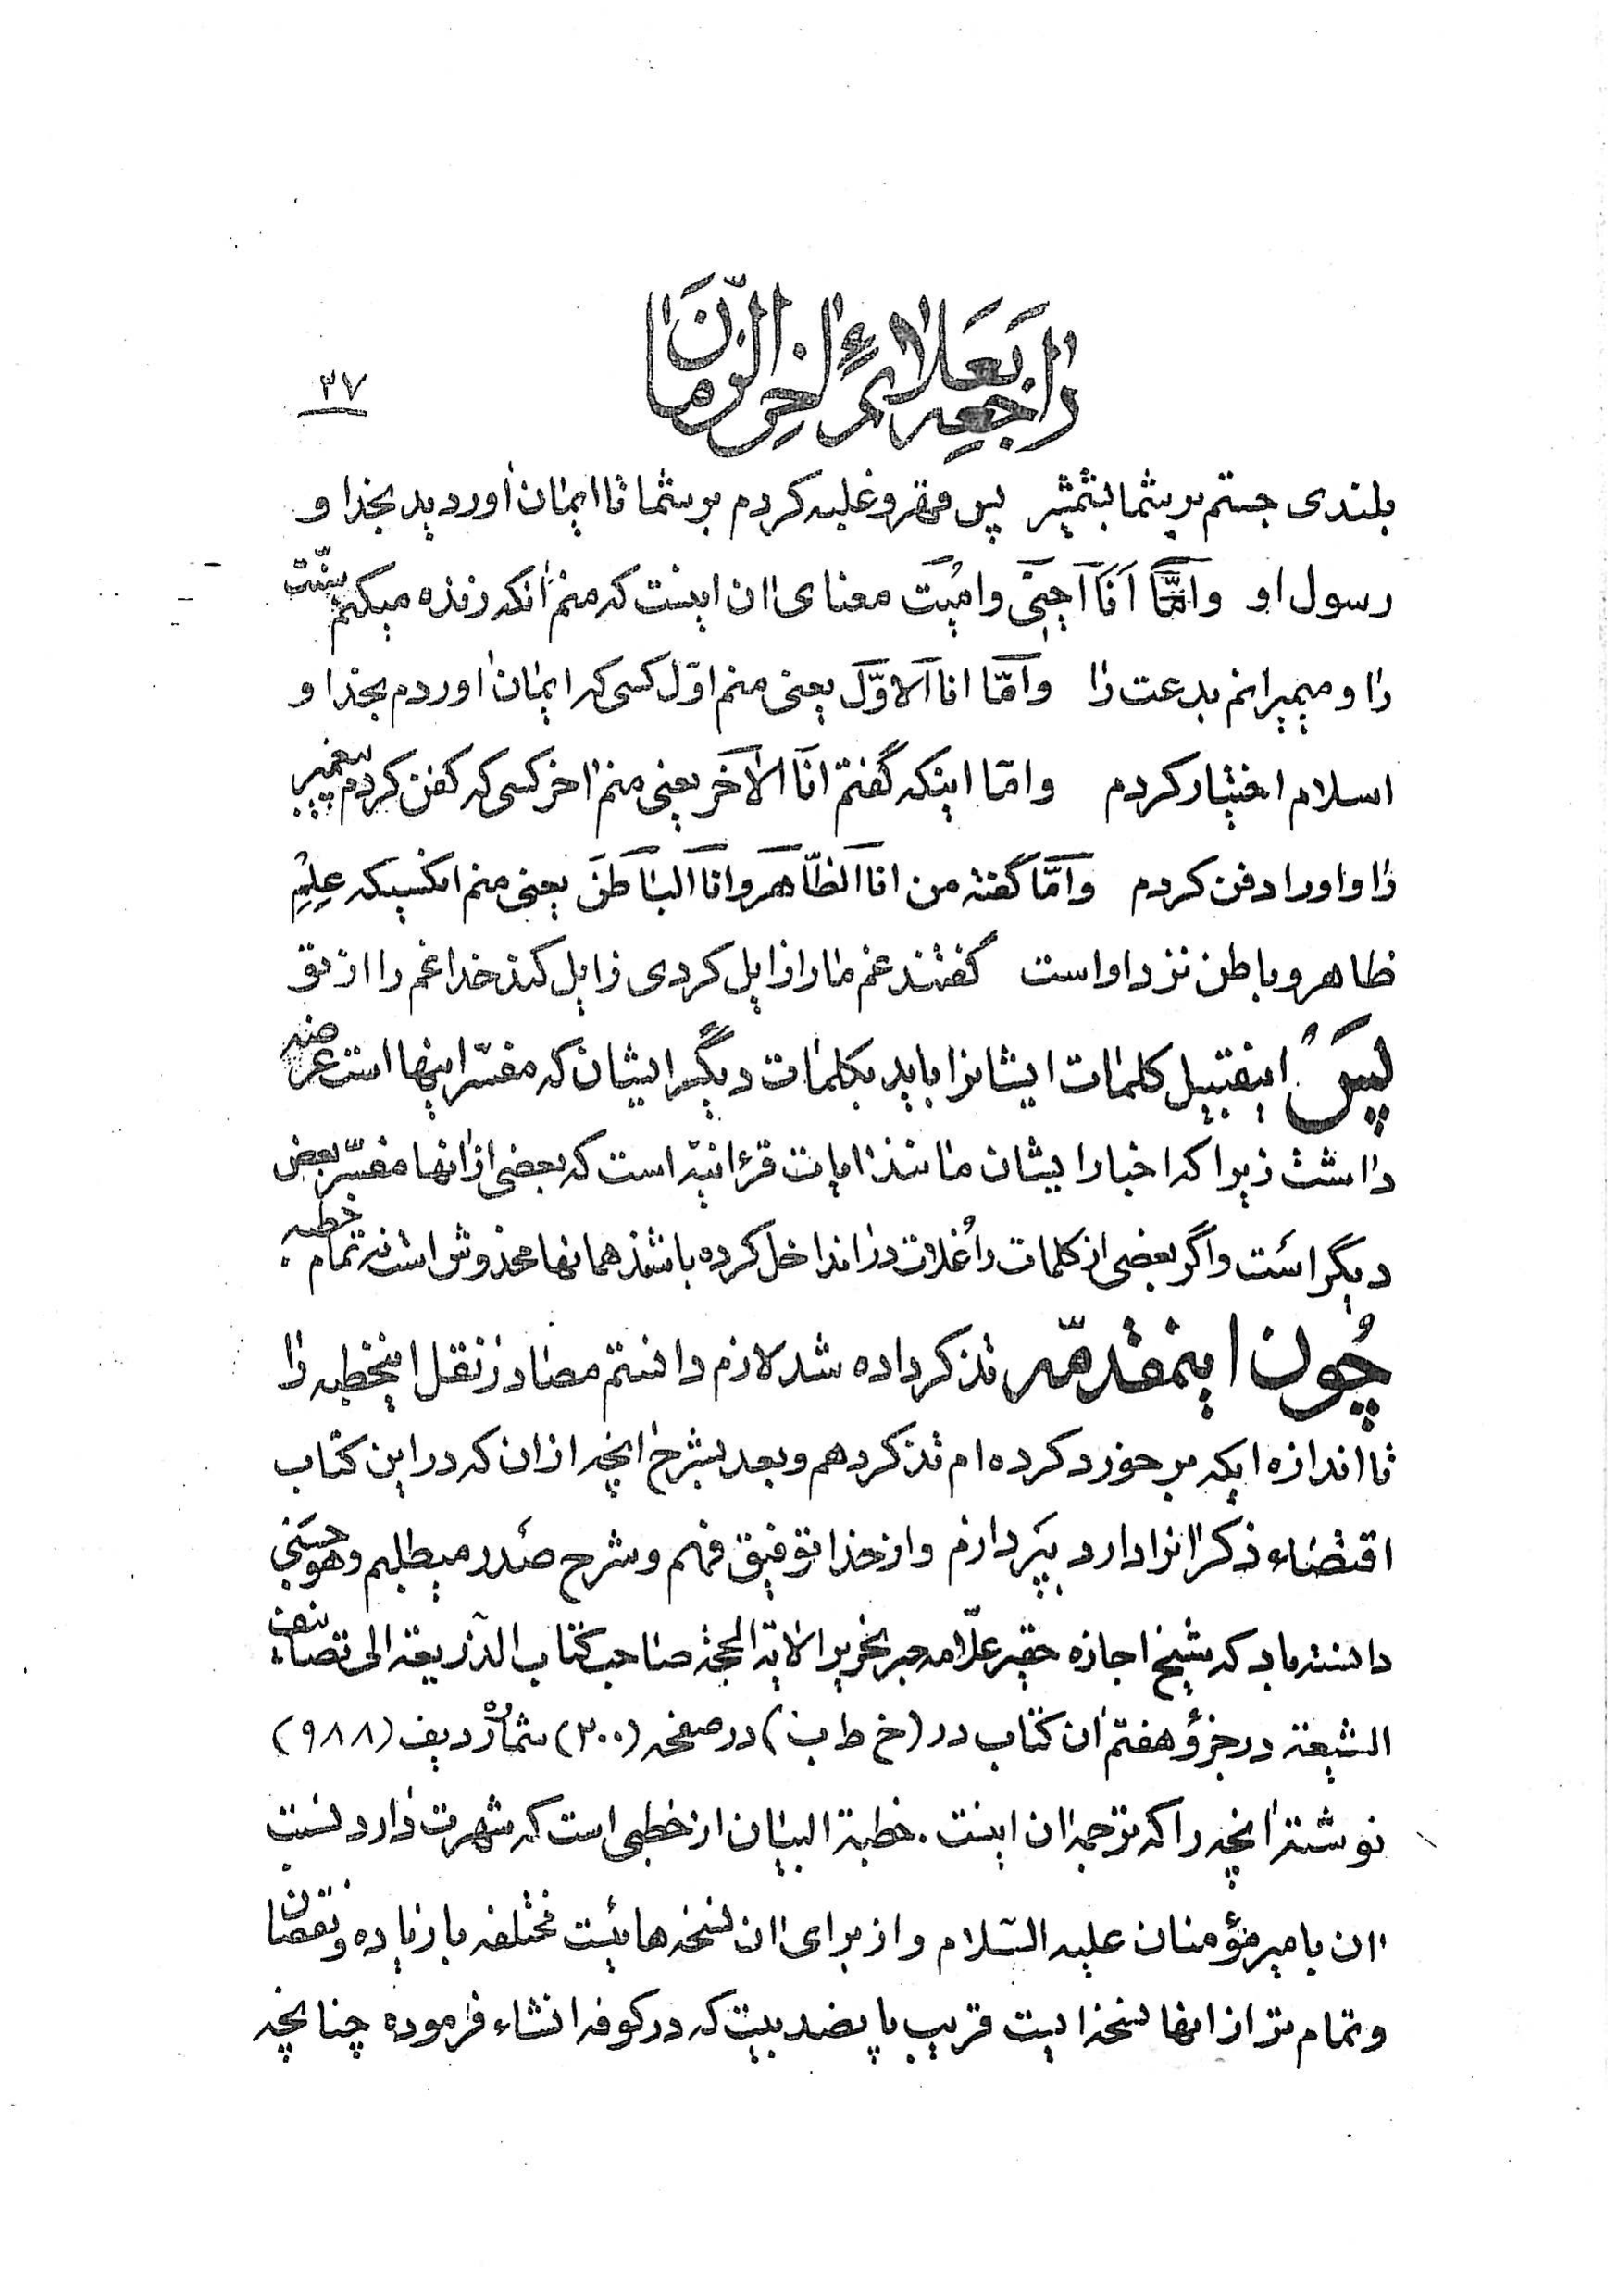 راجعه بعلائم اخر الزمان
۳۷
بلندی جستم بر شما بشمشیر پس قهر و غلبه کردم بر شما تا ایمان اوردید بخدا و
رسول او وامّا اَنَا اُحیی وامُیت معنای ان اینست که منم انکه زنده میکنم سنّت
را و میمیرانم بدعت را وامّا انا الاوّل یعنی منم اوّل کسی که ایمان اوردم بخدا و
اسلام اختیار کردم وامّا اینکه گفتم انَا الاخر یعنی منم اخر کسی که کفن کردم پیغمبر
را و اورا دفن کردم وامَّا گفته من انا الظّاهر وانا الباطن یعنی منم انکسیکه علم
ظاهر و باطن نزد او است گفتند غم ما را زایل کردی زایل کند خدا غم را از تو
پس اینقبیل کلمات ایشانرا باید بکلمات دیگر ایشان که مفسّر اینها است عرضه
داشت زیرا که اخبار ایشان مانند ایات قرءانیّه است که بعضی از انها مفسّر بعض
دیگر است واگر بعضی از کلمات را غلات در ان داخل کرده باشند همانها مخدوش است نه تمام خطبه.
چُون اینمقدمّه تذکر داده شد لازم دانستم مصادر نقل اینخطبه را
تا اندازه ایکه بر خورد کرده ام تذکر دهم و بعد بشرح انچه از ان که در این کتاب
اقتضاء ذکر انرا دارد بپردازم و از خدا توفیق فهم و شرح صدر میطلبم وهو حسبی
دانسته باد که شیخ اجازه حقیر علّامه حبر نحریر الایة الحجّة صاحب کتاب الذریعة الی تصانیف
الشیعة در جزؤ هفتم ان کتاب در (خ ط ب) در صفحه (۲۰۰) شماره ردیف (۹۸۸)
نوشته انچه را که ترجمه ان اینست. خطبة البیان از خطبی است که شهرت دارد نسبت
ان بامیر مؤمنان علیه السّلام و از برای ان نسخه هائیست مختلفه با زیاده و نقصان
و تمام تر از انها نسخه ایست قریب پانصد بیت که در کوفه انشاء فرموده چنانچه